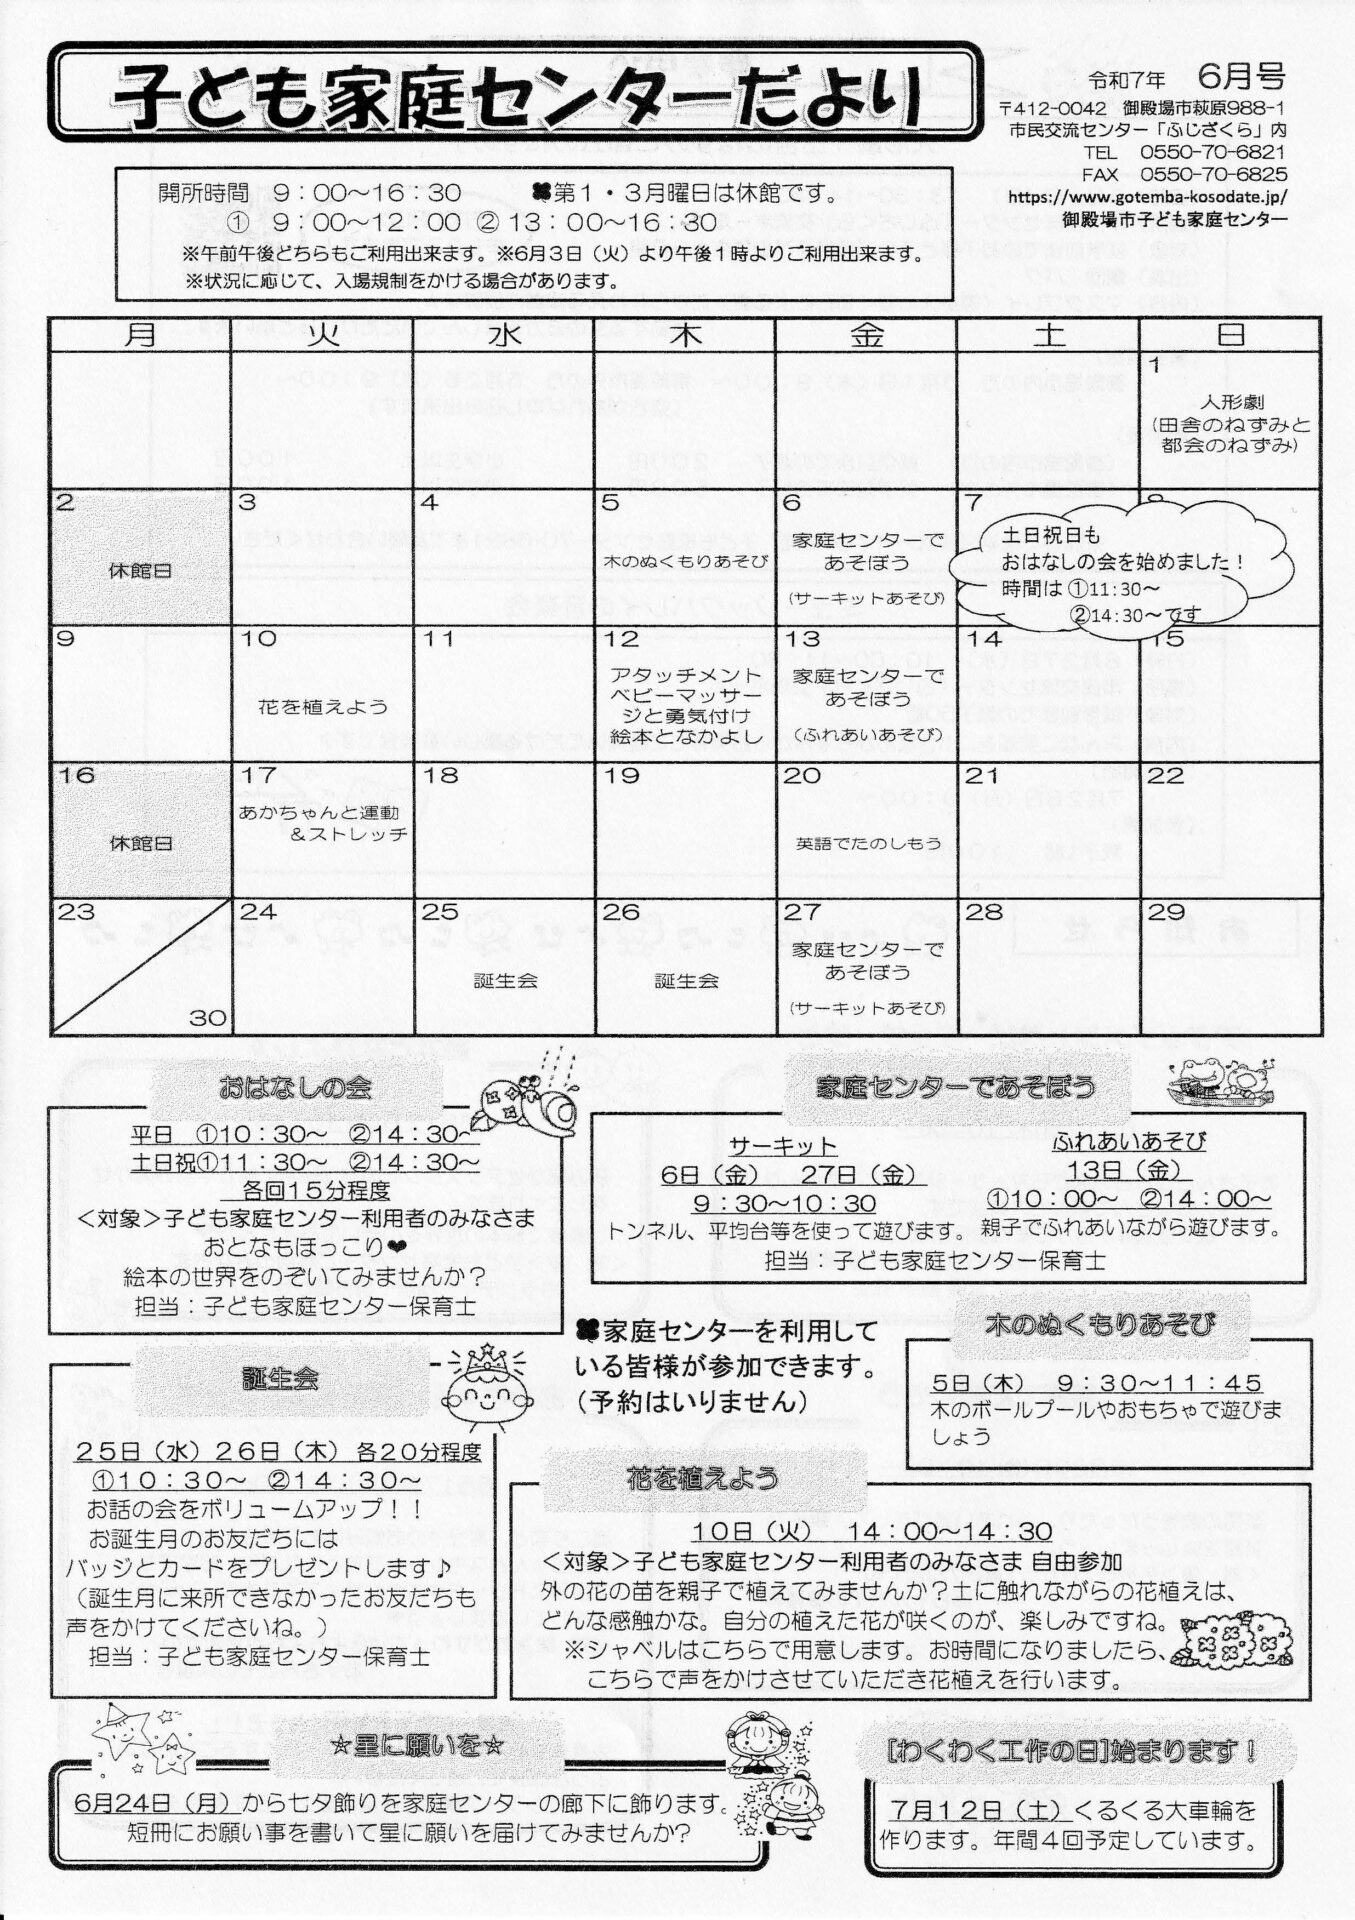 子ども家庭センターだより
令和7年　6月号
〒412-0042　御殿場市萩原988-1
市民交流センター「ふじざくら」内
TEL　0550-70-6821
FAX　0550-70-6825
https://www.gotemba-kosodate.jp/
御殿場市子ども家庭センター
開所時間　9：00～16：30　　✤第1・3月曜日は休館です。
①　9：00～12：00 ② 13：00～16：30
※午前午後どちらもご利用出来ます。※6月3日（火）より午後1時よりご利用出来ます。
※状況に応じて、入場規制をかける場合があります。
月　火　水　木　金　土　日
1
人形劇
(田舎のねずみと
都会のねずみ)
2
休館日
3
4
5
木のぬくもりあそび
6
家庭センターで
あそぼう
(サーキットあそび)
7
8
土日祝日も
おはなしの会を始めました！
時間は ①11:30～
②14:30～です
9
10
花を植えよう
11
12
アタッチメント
ベビーマッサー
ジと勇気付け
絵本となかよし
13
家庭センターで
あそぼう
(ふれあいあそび)
14
15
16
休館日
17
あかちゃんと運動
＆ストレッチ
18
19
20
英語でたのしもう
21
22
23
30
24
25
誕生会
26
誕生会
27
家庭センターで
あそぼう
(サーキットあそび)
28
29
おはなしの会
平日　①10：30～　②14：30～
土日祝①11：30～　②14：30～
各回15分程度
＜対象＞子ども家庭センター利用者のみなさま
おとなもほっこり❤
絵本の世界をのぞいてみませんか？
担当：子ども家庭センター保育士
家庭センターであそぼう
サーキット
6日（金）　27日（金）
9：30～10：30
トンネル、平均台等を使って遊びます。
ふれあいあそび
13日（金）
①10：00～　②14：00～
親子でふれあいながら遊びます。
担当：子ども家庭センター保育士
✤家庭センターを利用して
いる皆様が参加できます。
（予約はいりません）
木のぬくもりあそび
5日（木）　9：30～11：45
木のボールプールやおもちゃで遊びま
しょう
誕生会
25日（水）26日（木）各20分程度
①10：30～　②14：30～
お話の会をボリュームアップ！！
お誕生月のお友だちには
バッジとカードをプレゼントします♪
（誕生月に来所できなかったお友だちも
声をかけてくださいね。）
担当：子ども家庭センター保育士
花を植えよう
10日（火）　14：00～14：30
＜対象＞子ども家庭センター利用者のみなさま 自由参加
外の花の苗を親子で植えてみませんか？土に触れながらの花植えは、
どんな感触かな。自分の植えた花が咲くのが、楽しみですね。
※シャベルはこちらで用意します。お時間になりましたら、
こちらで声をかけさせていただき花植えを行います。
☆星に願いを☆
6月24日（月）から七夕飾りを家庭センターの廊下に飾ります。
短冊にお願い事を書いて星に願いを届けてみませんか？
[わくわく工作の日]始まります！
7月12日（土）くるくる大車輪を
作ります。年間4回予定しています。